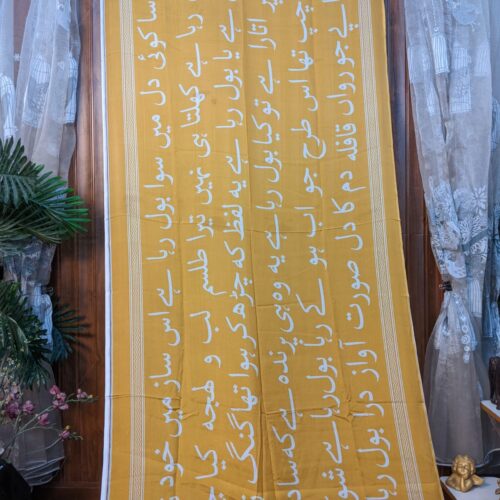 سا کوئی دل میں سوا بول رہا ہے اس ساز میں خود
رہا ہے کھلتا ہی نہیں تیرا طلسم لب و لہجہ کیا
ہے یا بول رہا ہے یہ لفظ کہ چڑھ کر ہوا تھا گنگ
اتارا ہے تو کیا بول رہا ہے یہ وہ ہی پرندہ ہے کہ
چپ تھا اس طرح جو اب ہو کے رہا بول رہا ہے
جو رواں قافلہ دم کا دل صورت آواز درا بول رہا